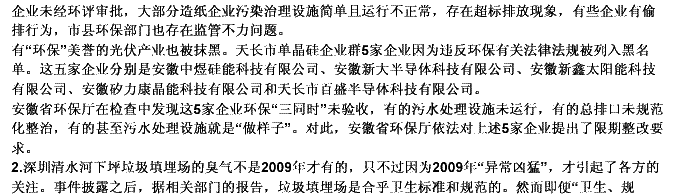 企业未经环评审批，大部分造纸企业污染治理设施简单且运行不正常，存在超标排放现象，有些企业有偷
排行为，市县环保部门也存在监管不力问题。
有“环保”美誉的光伏产业也被抹黑。天长市单晶硅企业群5家企业因为违反环保有关法律法规被列入黑名
单。这五家企业分别是安徽中煜硅能科技有限公司、安徽新大半导体科技有限公司、安徽新鑫太阳能科技
有限公司、安徽矽力康晶能科技有限公司和天长市百盛半导体科技有限公司。
安徽省环保厅在检查中发现这5家企业环保“三同时”未验收，有的污水处理设施未运行，有的总排口未规范
化整治，有的甚至污水处理设施就是“做样子”。对此，安徽省环保厅依法对上述5家企业提出了限期整改要
求。
2.深圳清水河下坪垃圾填埋场的臭气不是2009年才有的，只不过因为2009年“异常凶猛”，才引起了各方的
关注。事件披露之后，据相关部门的报告，垃圾填埋场是合乎卫生标准和规范的。然而即便“卫生、规